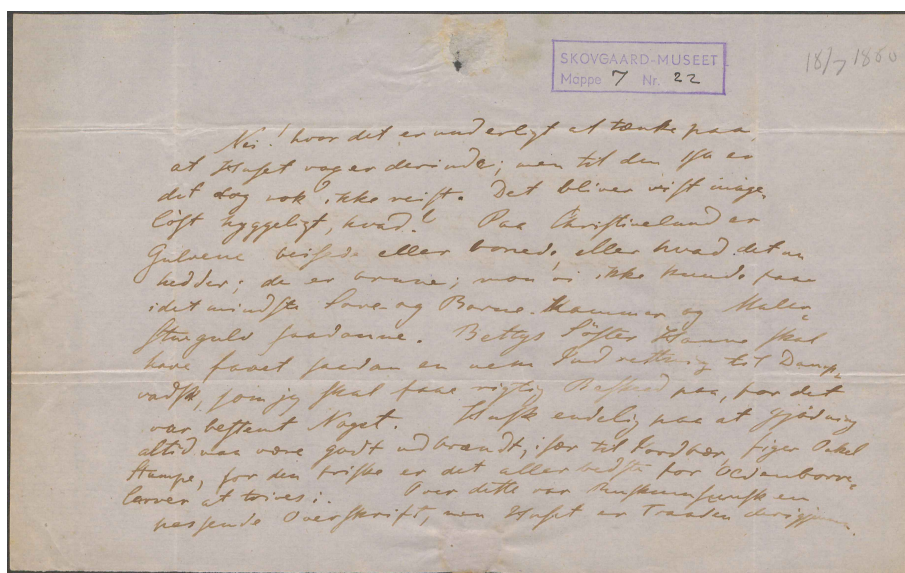 SKOVGAARD-MUSEET
Mappe 7 Nr. 22
18/7 1860
Nei! hvor det er underligt at tænke paa
at Huset er derinde; men til den er
det dog nok ikke reist. Det bliver vist mage
løst hyggeligt, hvad! Paa Christinelund er
Gulvene eller bonede, eller hvad det nu
hedder; de er brune; mon vi ikke kunde faae
idet mindste Sove- og Børne-Kammer og Maler
stuegulv saadanne. Bettys Söster Hanne skal
have faaet saadan en nem Indretning til Damp-
vadsk, som jeg skal faae rigtig Besked paa, for det
var bestemt Noget. Husk endelig paa at Gjödning
altid maa være godt udbrændt, især til Jordbær, siger Onkel
Stampe, for den friske er det allerbedste for Oldenborre-
larver at trives i. Over dette var en
passende Overskrift, men Huset er Traaden derigjennem